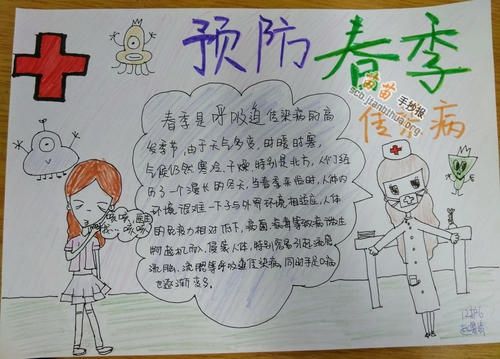 预防春季
传染病
苗苗手抄报
scb.jianbihua.org
春季是呼吸道传染病的高
发季节,由于天气多变,时暖时寒,
气候仍然寒冷、干燥,特别是北方,人们经
历了一个漫长的冬天,当春季来临时,人体内
环境很难一下子与外界环境相适应,人体
的免疫力相对低下,细菌、病毒等致病微生
物趁机而入,侵袭人体,特别容易引起流感、
流脑、流腮等呼吸道传染病,同时手足口病
也逐渐高发。
咳咳
咳咳